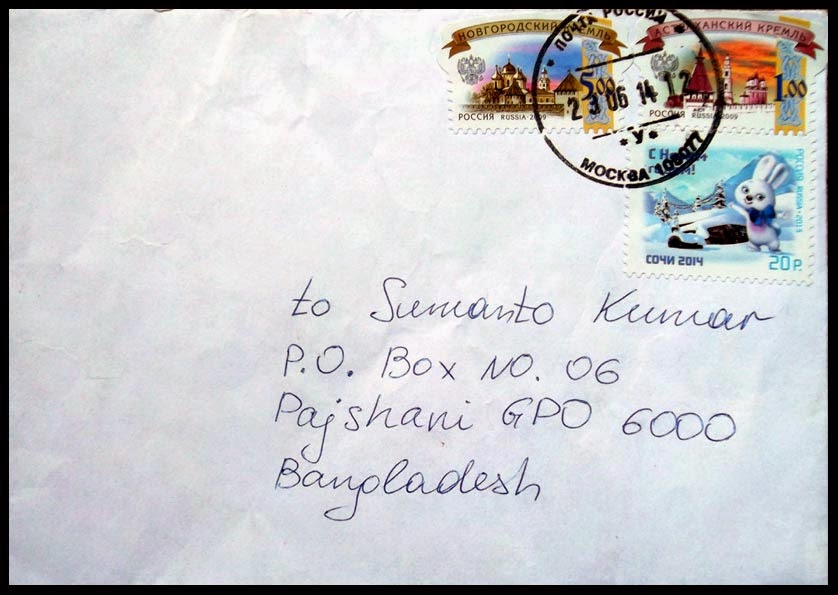 НОВГОРОДСКИЙ КРЕМЛЬ
5.00
РОССИЯ RUSSIA·2009
АСТРАХАНСКИЙ КРЕМЛЬ
1.00
РОССИЯ RUSSIA·2009
ПОЧТА РОССИИ
23 06 14 12
* У *
МОСКВА
С Новым
годом!
РОССИЯ·RUSSIA·2013
СОЧИ 2014
20 Р.
to Sumanto Kumar
P.O. Box NO. 06
Pajshani GPO 6000
Bangladesh